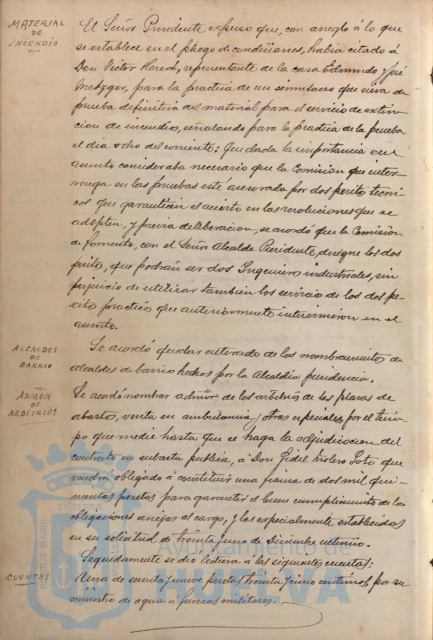 MATERIAL
DE
INCENDIO
El Señor Presidente expuso que, con arreglo á lo que
se establece en el pliego de condiciones, habia citado á
Don Victor representante de la casa Edmundo y José
Metzger, para la practica de un simulacro que sirva de
prueba definitiva del material para el servicio de extin-
cion de incendios, señalando para la practica de la prueba
el dia ocho del corriente; que dada la importancia del
asunto consideraba necesario que la Comision que inter-
venga en las pruebas esté asesorada por dos peritos tecni-
cos que garanticen el acierto en las resoluciones que se
adopten, y previa deliberacion, se acordó que la Comision
de fomento, con el Señor Alcalde Presidente, designe los dos
peritos, que podrán ser dos Ingenieros industriales, sin
perjuicio de utilizar tambien los servicios de los dos pe-
ritos practicos que anteriormente intervinieron en el
asunto.
ALCALDES
DE
BARRIO
Se acordó quedar enterado de los nombramientos de
alcaldes de barrio hechos por la Alcaldia presidencia.
ADMÓN
DE
ARBITRIOS
Se acordó nombrar admor de los arbitrios de las plazas de
abastos, venta en ambulancia y otros especiales, por el tiem-
po que medie hasta que se haga la adjudicacion del
contrato en subasta publica, á Don Fidel Soto que
vendrá obligado á constituir una fianza de dos mil qui-
nientas pesetas para garantir el buen cumplimiento de las
obligaciones anejas al cargo, y las especialmente establecidas
en su solicitud de treinta y uno de Diciembre ultimo.
Seguidamente se dió lectura á las siguientes cuentas:
CUENTAS
Una de sesenta y nueve pesetas treinta y cinco centimos, por su-
ministro de agua á fuerzas militares.
Ayuntamiento de
HUELVA